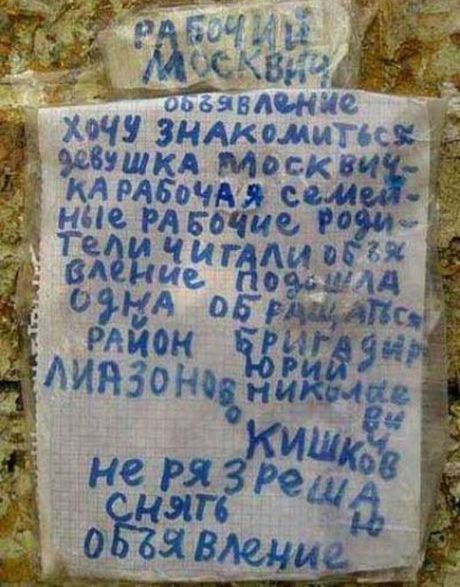 РАБОЧИЙ
МОСКВИЧ
ОБЪЯВЛЕНИЕ
ХОЧУ ЗНАКОМИТЬСЯ
ДЕВУШКА МОСКВИЧ-
КА РАБОЧАЯ СЕМЕЙ-
НЫЕ РАБОЧИЕ РОДИ-
ТЕЛИ ЧИТАЛИ ОБЪЯ
ВЛЕНИЕ ПОДОШЛА
ОДНА ОБРАЩАТЬСЯ
РАЙОН БРИГАДИР
ЛИАЗОНОВО ЮРИЙ
НИКОЛАЕ
ВИЧ
КИШКОВ
НЕ РЯЗРЕША
Ю
СНЯТЬ
ОБЪЯВЛЕНИЕ